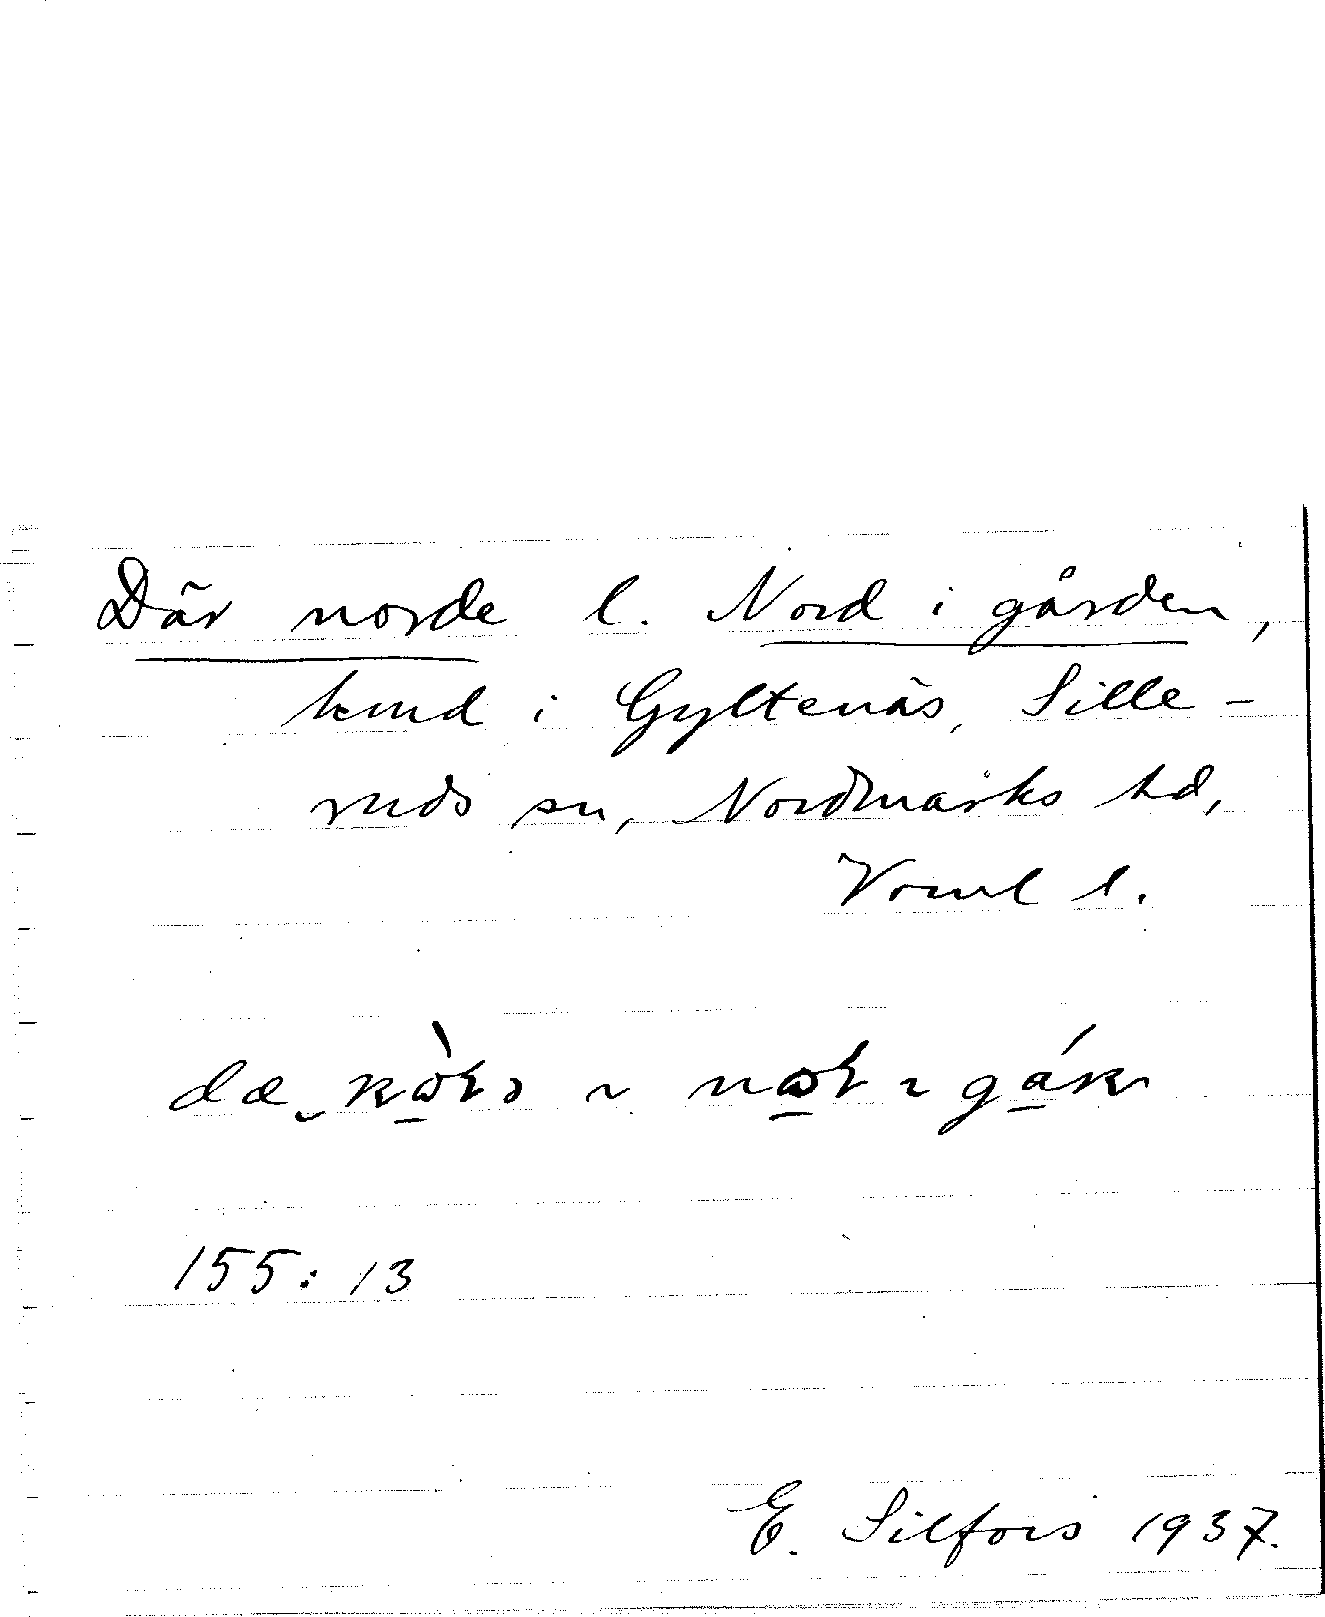 Där norde l. Nord i gården,
hmd i Gyltenäs, Sille-
ruds sn, Nordmarks hd,
Värml l.
155:13
E. Silfors 1937.